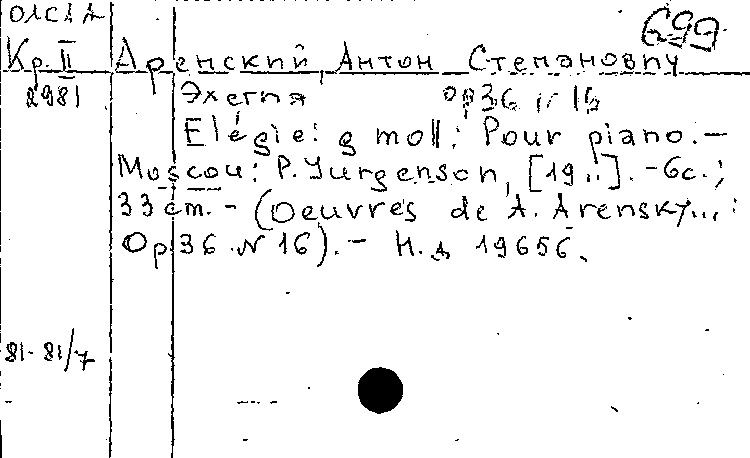 699
Кр. II Аренский, Антон Степанович
2981 Элегия op 36 N 16
Elégie: g moll: Pour piano. –
Moscou: P. Jurgenson, [19..]. – 6с.;
33 cm. – (Oeuvres de A. Arensky...:
Op 36 № 16). – Н.д 19656.
81-81/7